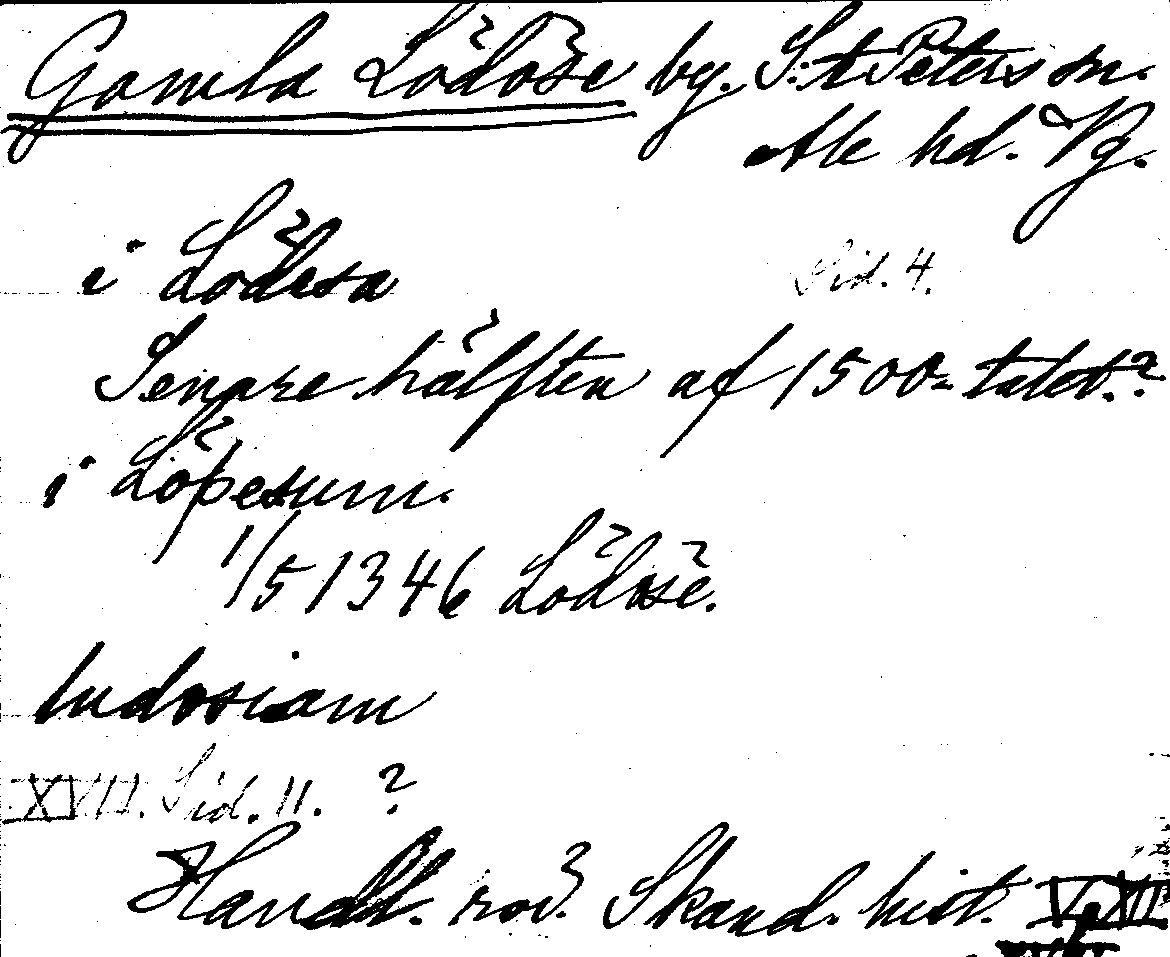 Gamla Lödöse by. S:t Peters sn.
Ale hd. Vg.
i Lödesa Sid. 4.
Senare hälften af 1500-talet.?
i Löþesum.
1/5 1346 Lödöse.
ludosiam
XVII. Sid. 11. ?
Handl. rör. Skand. hist.